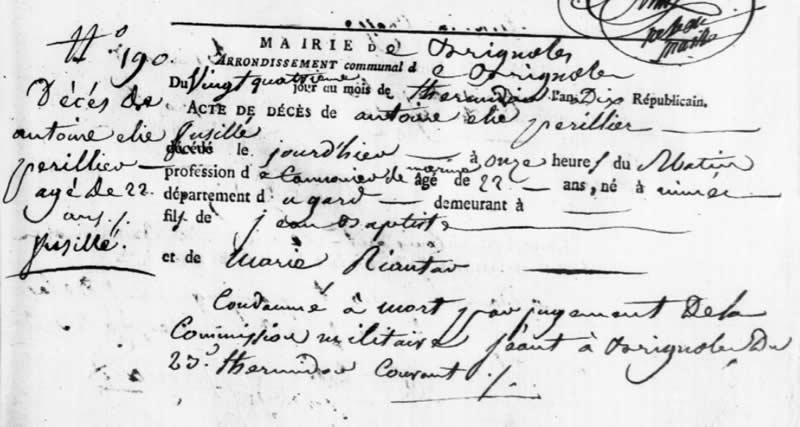 N.º 190.
Décés de
antoine elie
perillier
agé de 22.
ans ./.
fusillé.
MAIRIE De Brignoles
ARRONDISSEMENT communal de Brignoles
Du Vingt quatrieme jour du mois de thermidor l'an Dix Républicain.
ACTE DE DÉCÈS de antoine elie perillier
fusillé
décédé le jourd'hieu à onze heures du Matin
profession de Canonier de marine âgé de 22 ans, né à nimes
département du gard demeurant à
fils de jean Baptiste
et de Marie
Condamné à mort par jugement De la
Commission militaire séant à Brignoles Du
23.e thermidor Courant ./.